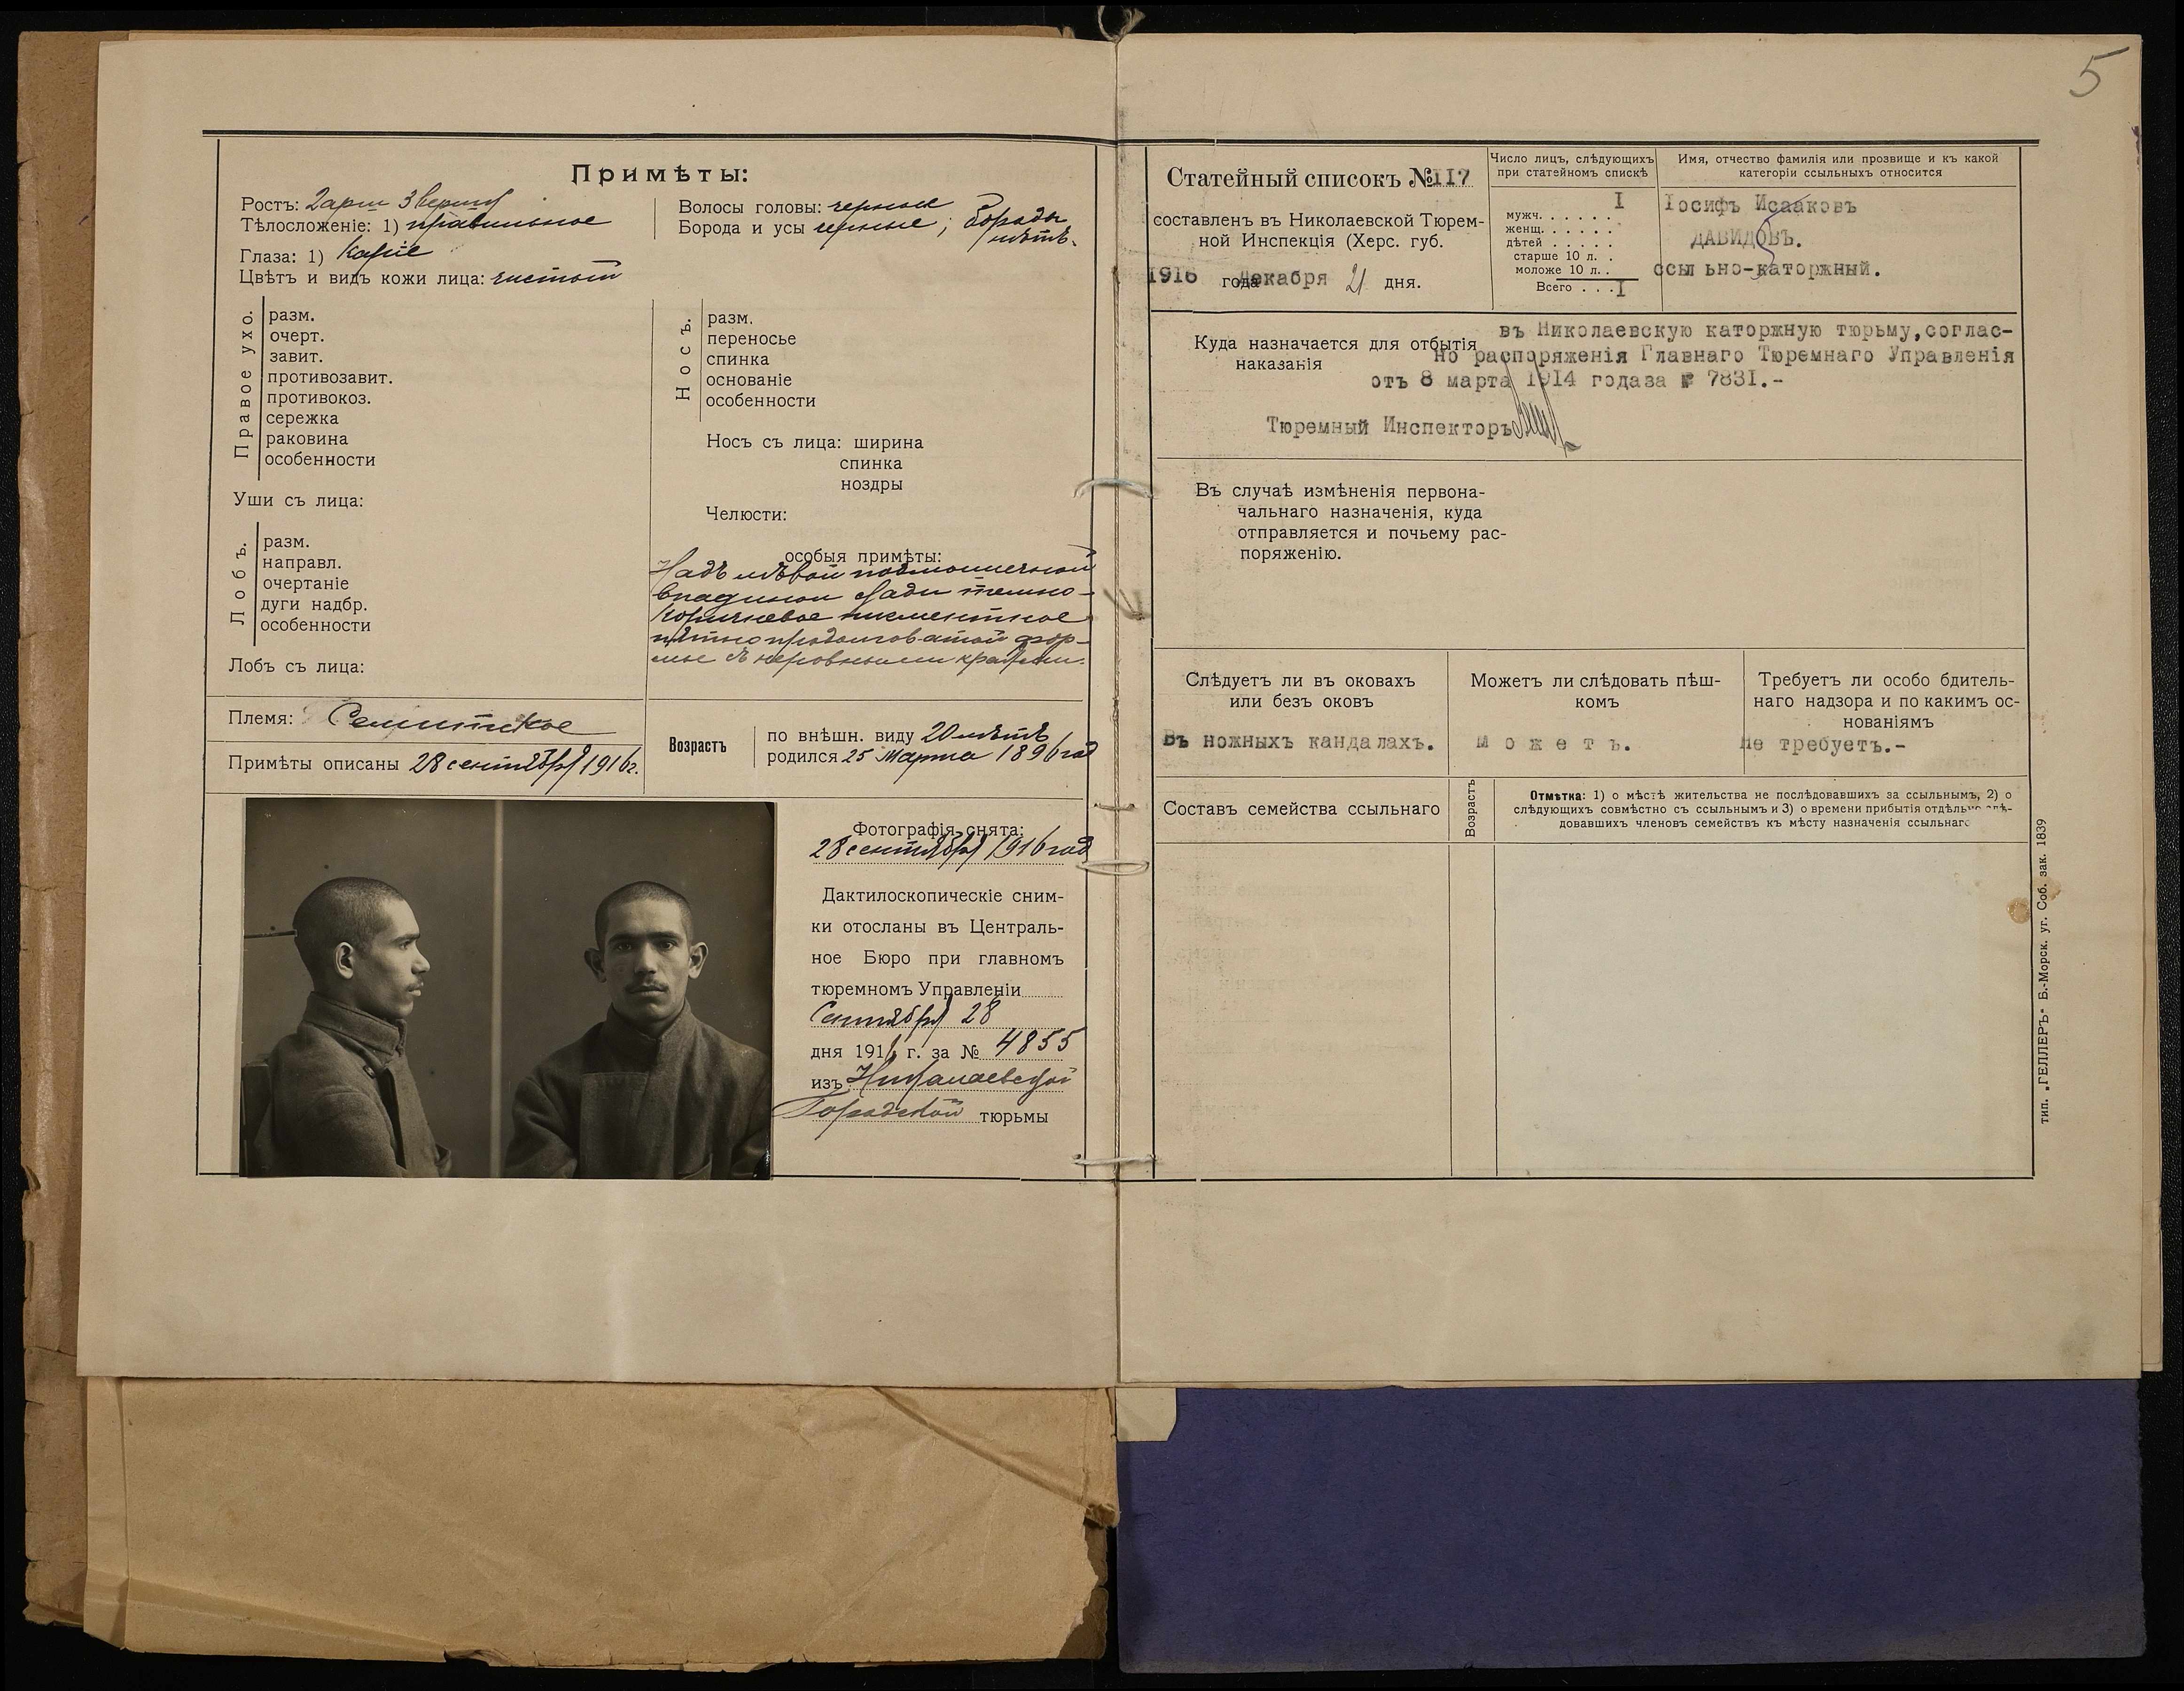 5
Примѣты:
Ростъ: 2 арш 3 верш
Тѣлосложеніе: 1) правильное
Глаза: 1) Каріе
Цвѣтъ и видъ кожи лица: чистый
Волосы головы: черные
Борода и усы черные; Бороды
нѣтъ.
Правое ухо.
разм.
очерт.
завит.
противозавит.
противокоз.
сережка
раковина
особенности
Носъ.
разм.
переносье
спинка
основаніе
особенности
Носъ съ лица: ширина
спинка
ноздры
Уши съ лица:
Челюсти:
Лобъ.
разм.
направл.
очертаніе
дуги надбр.
особенности
Лобъ съ лица:
особыя примѣты:
Надъ лѣвой подмышечной
впадиной сзади темно-
коричневое пигментное
пятно продолговатой фор-
мы съ неровными краями.
Племя: Семитское
Примѣты описаны 28 сентября 1916 г.
Возрастъ
по внѣшн. виду 20 лѣтъ
родился 25 Марта 1896 год
Фотографія снята:
28 сентября 1916 год
Дактилоскопическіе сним-
ки отосланы въ Централь-
ное Бюро при главномъ
тюремномъ Управленіи
Сентября 28
дня 1916 г. за № 4855
изъ Николаевской
Городской тюрьмы
Статейный списокъ № 117
составленъ въ Николаевской Тюрем-
ной Инспекція (Херс. губ.
1916 года Декабря 21 дня.
Число лицъ, слѣдующихъ
при статейномъ спискѣ
мужч. . . . . . I
женщ. . . . . .
дѣтей . . . . .
старше 10 л. . .
моложе 10 л. . .
Всего . . . I
Имя, отчество фамилія или прозвище и къ какой
категоріи ссыльныхъ относится
Іосифъ Исааковъ
ДАВИДОВЪ.
ссыльно-каторжный.
Куда назначается для отбытія
наказанія
въ Николаевскую каторжную тюрьму, соглас-
но распоряженія Главнаго Тюремнаго Управленія
отъ 8 марта 1914 годаза № 7831.-
Тюремный Инспекторъ
Въ случаѣ измѣненія первона-
чальнаго назначенія, куда
отправляется и почьему рас-
поряженію.
Слѣдуетъ ли въ оковахъ
или безъ оковъ
Въ ножныхъ кандалахъ.
Можетъ ли слѣдовать пѣш-
комъ
М о ж е т ъ.
Требуетъ ли особо бдитель-
наго надзора и по какимъ ос-
нованіямъ
Не требуетъ.-
Составъ семейства ссыльнаго
Возрастъ
Отмѣтка: 1) о мѣстѣ жительства не послѣдовавшихъ за ссыльнымъ, 2) о
слѣдующихъ совмѣстно съ ссыльнымъ и 3) о времени прибытія отдѣльно слѣ-
довавшихъ членовъ семействъ къ мѣсту назначенія ссыльнаго
тип. „ГЕЛЛЕРЪ" Б.-Морск. уг. Соб. зак. 1839